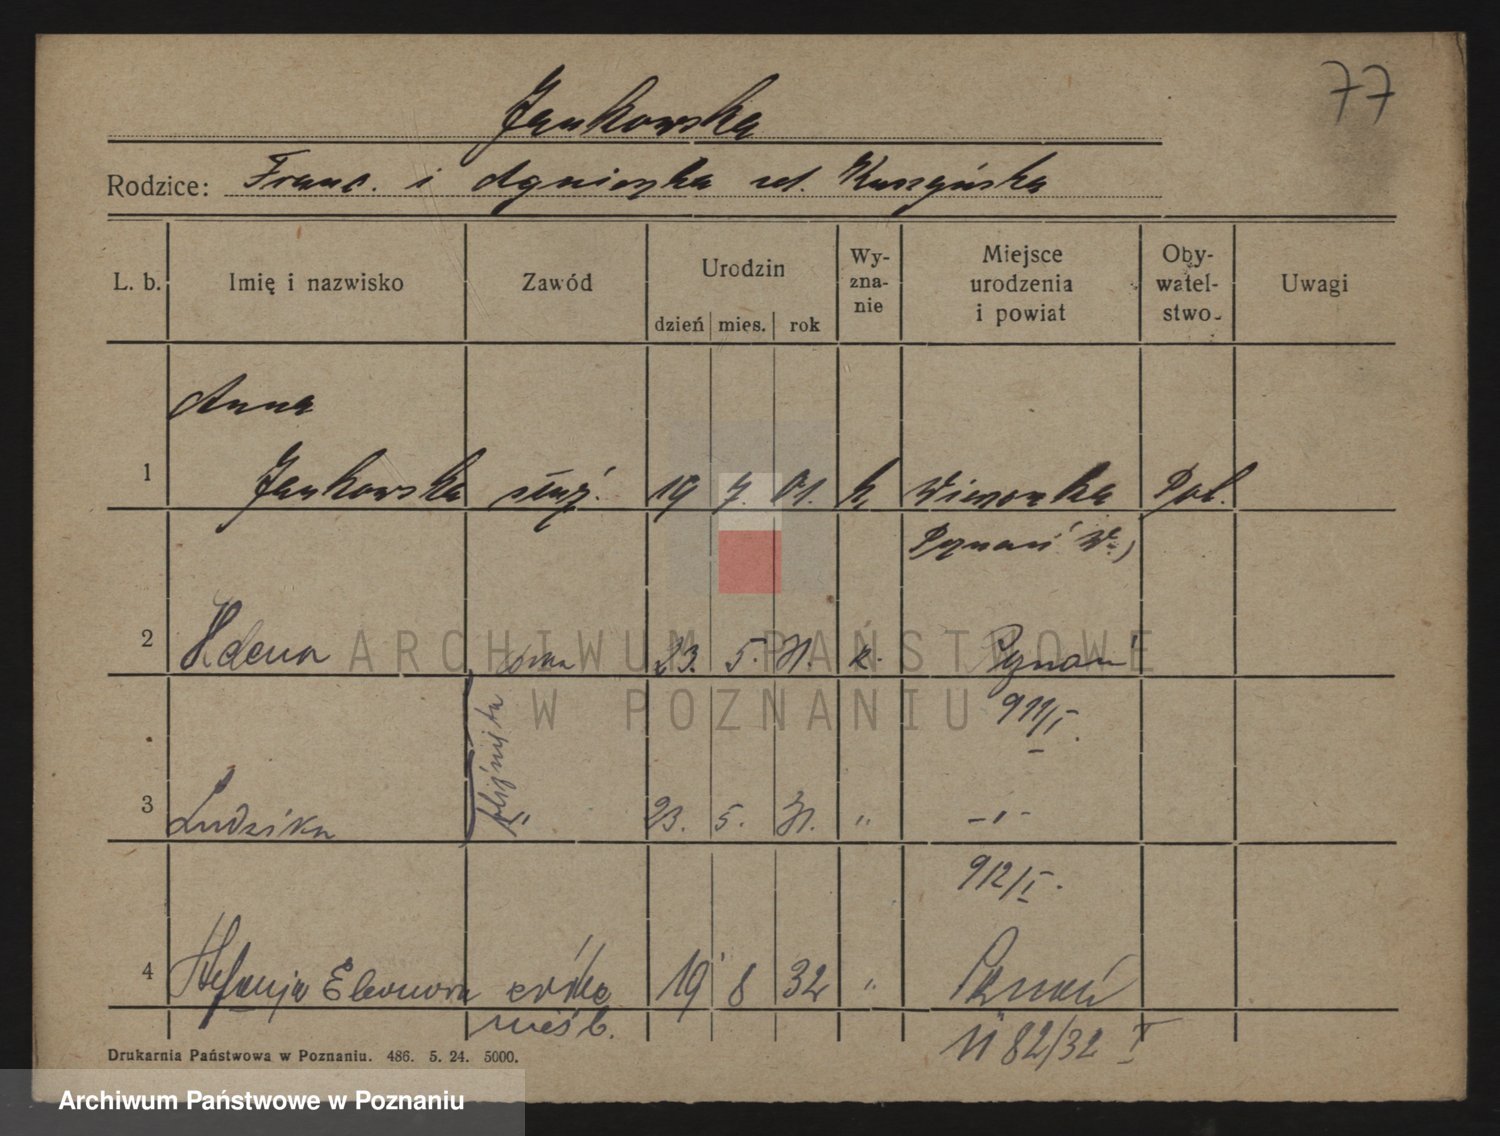 77
Jankowska
Rodzice: Franc. i Agnieszka
L. b. Imię i nazwisko Zawód Urodzin Wy- Miejsce Oby- Uwagi
zna- urodzenia watel-
nie i powiat stwo
dzień mies. rok
Anna
1 Jankowska służ. 19 7. 01. k Pol.
Poznań W.)
2 Helena 23. 5. 31. k. Poznań
bliźnięta
911/I.
3 Ludwika " 23. 5. 31. " -"-
912/I.
4 Stefanja Eleonora córka 19 8 32 " Poznań
nieśl.
82/32 I
Drukarnia Państwowa w Poznaniu. 486. 5. 24. 5000.
ARCHIWUM PAŃSTWOWE
W POZNANIU
Archiwum Państwowe w Poznaniu